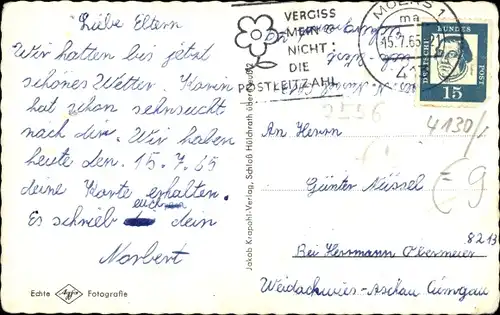 Liebe Eltern
Wir hatten bis jetzt
schönes Wetter. Karin
hat schon sehnsucht
nach dir. Wir haben
heute den. 15.7.65
deine Karte erhalten.
Es schrieb euch dein
Norbert
Echte Agfa Fotografie
Jakob Krapohl-Verlag, Schloß Hülchrath über
VERGISS
MEIN
NICHT:
DIE
POSTLEITZAHL
MOERS 1
ma
15.7.65
DEUTSCHE BUNDESPOST
15
4130/1
An Herrn
Günter Nüssel
8213
Bei Herrmann Obermeier
Aschau